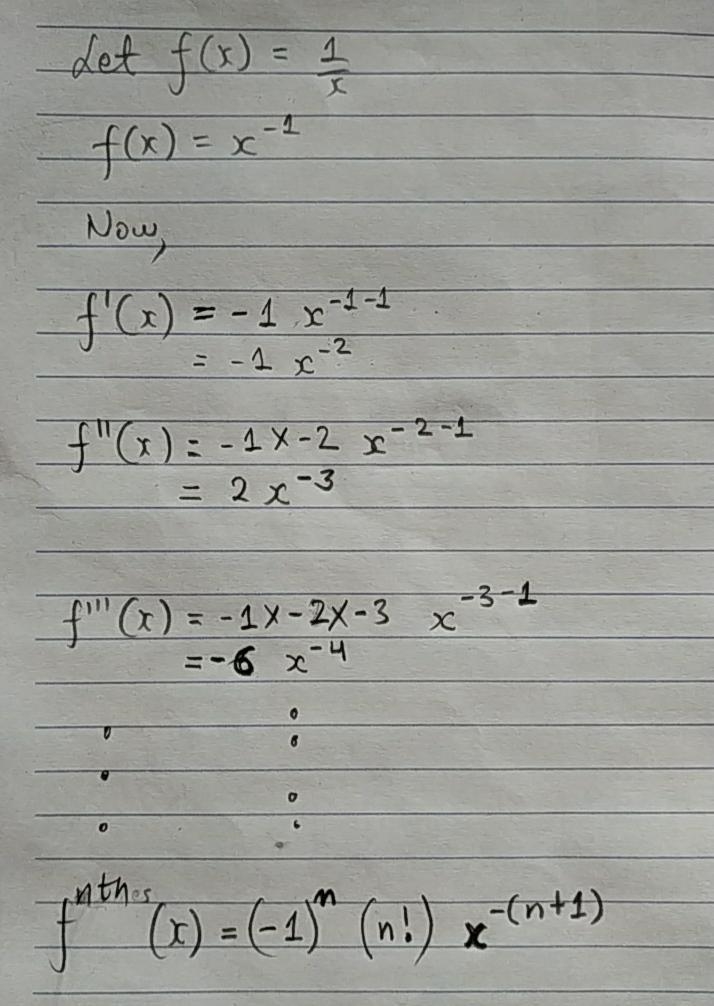 Let f(x) = 1/x
f(x) = x^-1
Now,
f'(x) = -1 . x^-1-1
= -1 x^-2
f''(x) = -1 x -2 x^-2-1
= 2 x^-3
f'''(x) = -1 x -2 x -3 x^-3-1
= -6 x^-4
f^nth (x) = (-1)^n (n!) x^-(n+1)